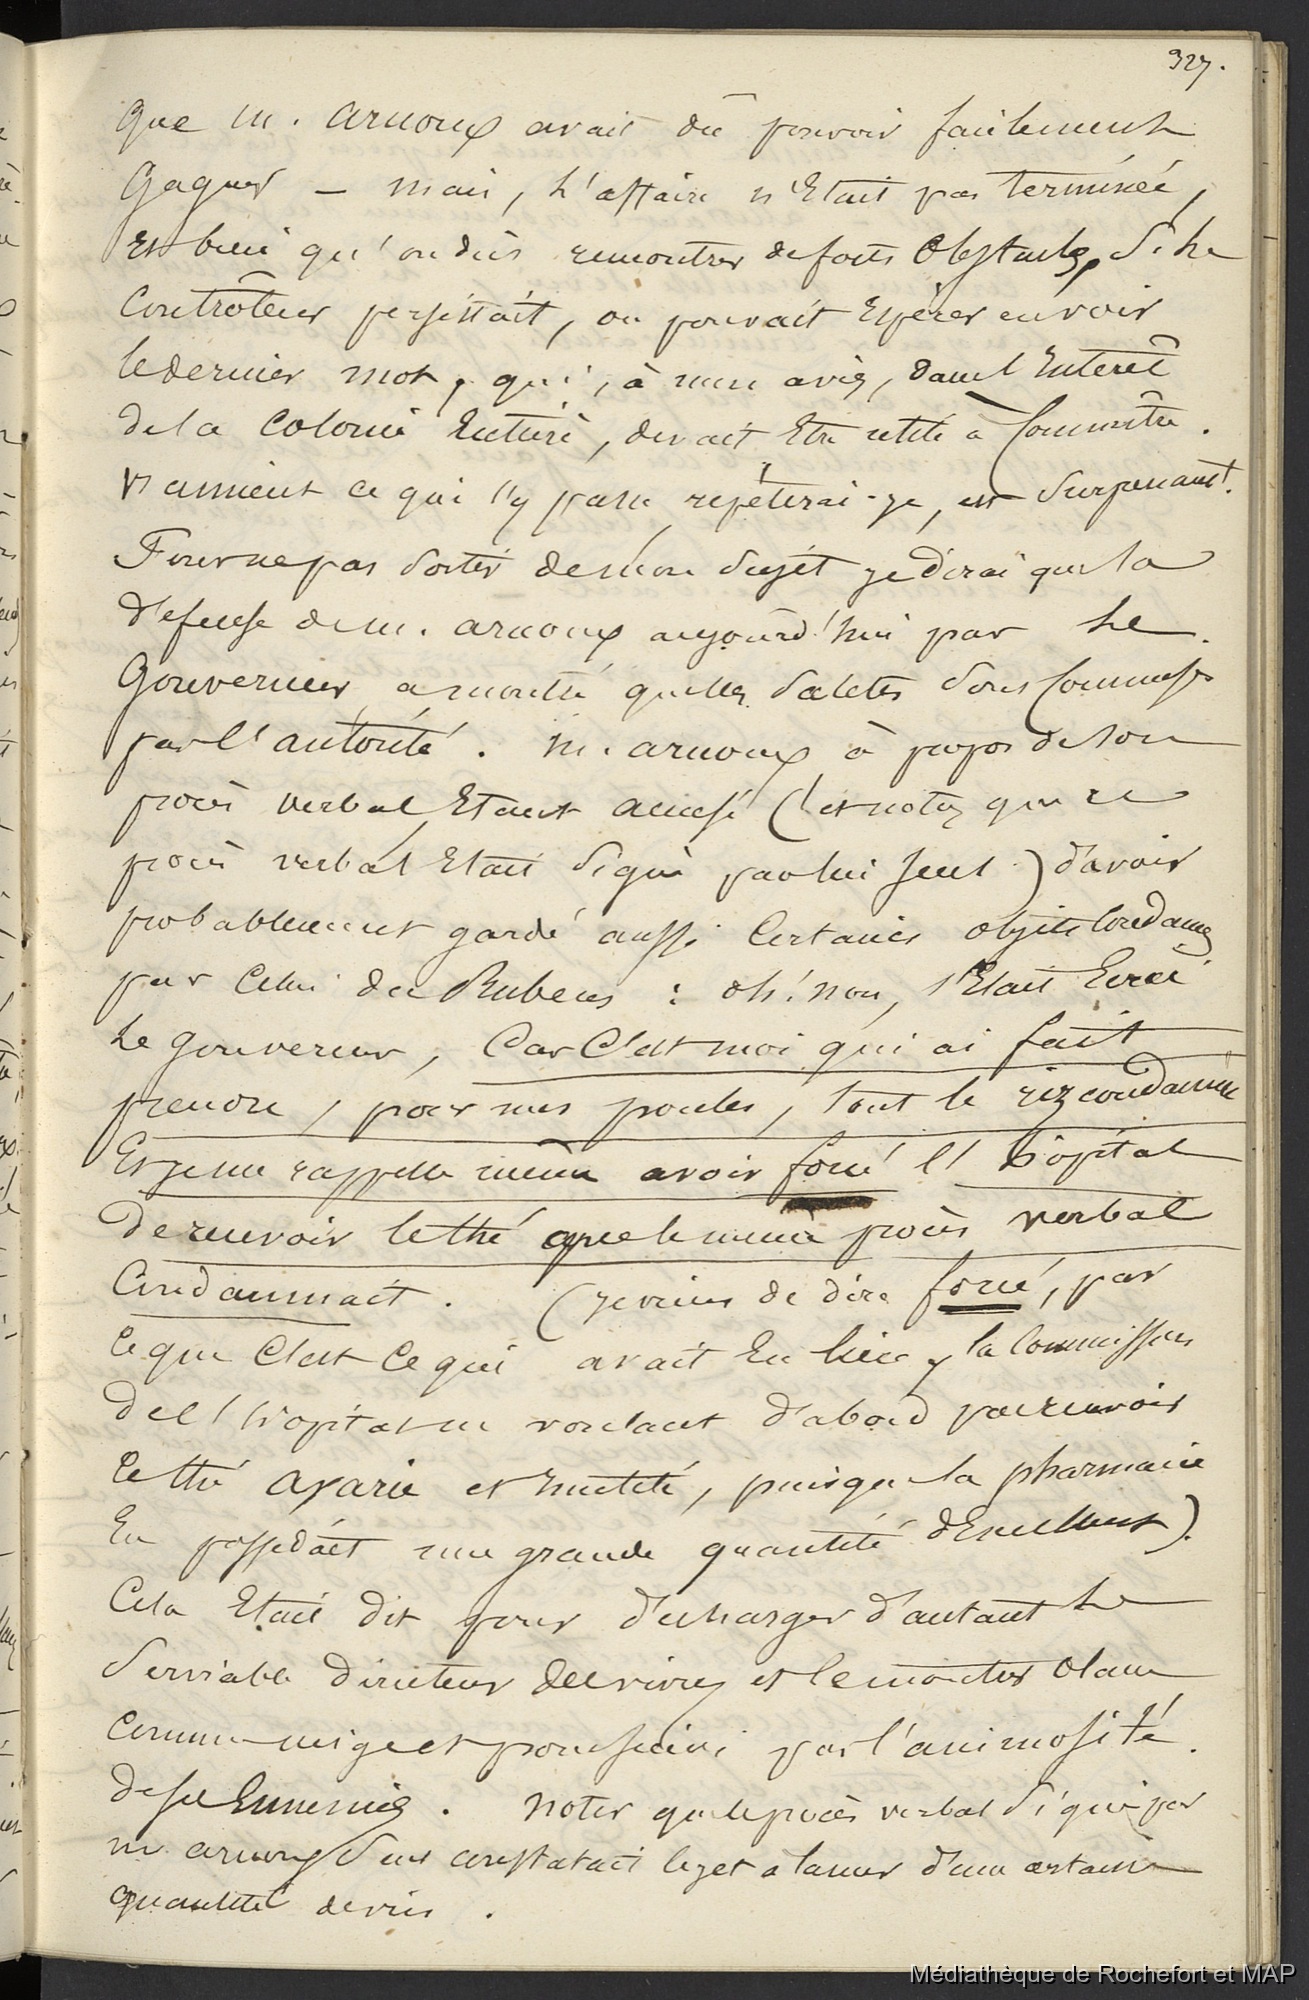 327.
Que m. arnoux avait dû pouvoir facilement
Gagner — mais, L'affaire n'Etait pas terminéé,
Et bien qu'on dût rencontrer de forts Obstacles, Si Le
Contrôleur persistait, on pouvait Espérer en voir
le dernier mot, qui, à mon avis, dans l'Interêt
de la Colonie Entière, devait Etre utile à Connaître.
Vraiment ce qui s'y passe repéterai-je, est Surprenant.
Pour ne pas Sortir de mon Sujet je dirai que la
défense de m. arnoux aujourd'hui par Le
Gouverneur a montré quelles Saletés Sont Commises
par l'autorité. M. arnoux à propos de son
procès verbal Etant accusé (et notez que ce
procès verbal Etait Signé par lui Seul) d'avoir
probablement gardé aussi Certains objets Condamnés
par Celui du Rubens : oh! non, s'Etait Ecrié
Le gouverneur, Car C'est moi qui ai fait
prendre, pour mes poules, tout le riz condamné
Et je me rappelle même avoir forcé l'hôpital
De recevoir le thé que le même procès verbal
Condamnait. (je viens de dire forcé, par
ce que C'est Ce qui avait Eu lieu, la Commission
De l'hôpital ne voulant d'abord pas recevoir
Ce thé avarié et humecté, puisque la pharmacie
En possédait une grande quantité d'Excellent).
Cela Etait dit pour décharger d'autant Le
Serviable Directeur des vivres et le montrer blanc
Comme neige et poursuivi par l'animosité
De ses Ennemis. Noter que le procès verbal Signé par
m arnoux Seul constatait le jet à la mer d'une certaine
quantité de riz.
Médiathèque de Rochefort et MAP